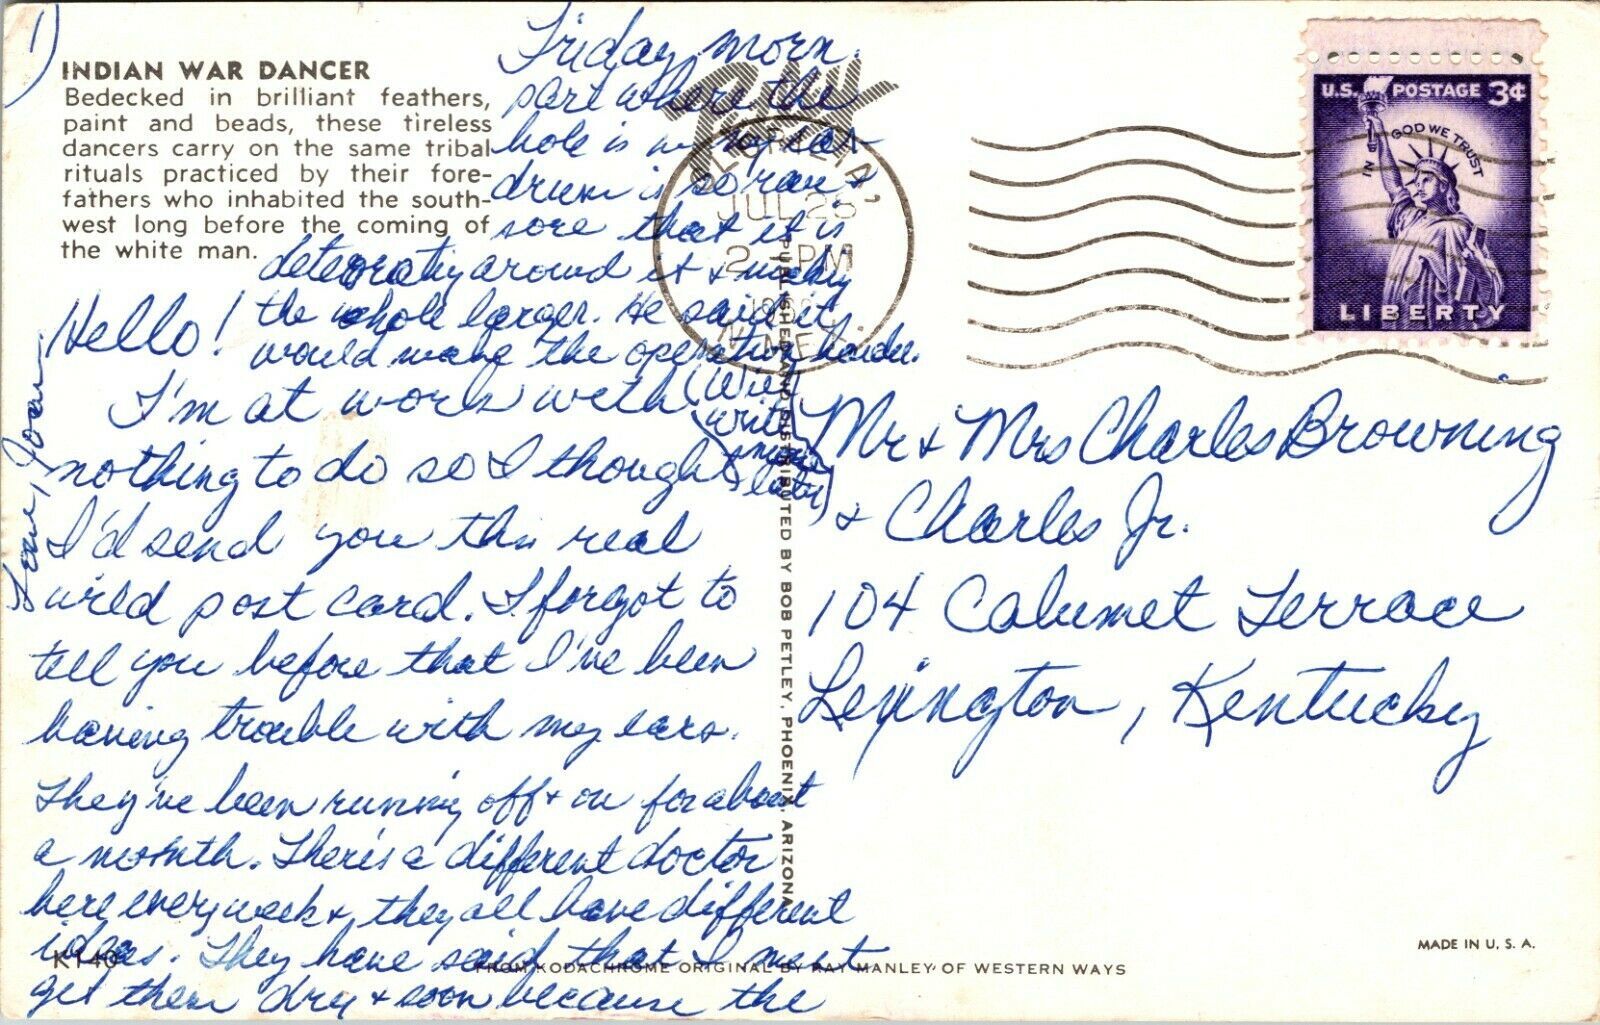 1)
INDIAN WAR DANCER
Bedecked in brilliant feathers,
paint and beads, these tireless
dancers carry on the same tribal
rituals practiced by their fore-
fathers who inhabited the south-
west long before the coming of
the white man.
Friday morn.
Hello!
I'm at work with
nothing to do so I thought
I'd send you this real
wild post card. I forgot to
tell you before that I've been
having trouble with my ears.
They've been running off + on for about
a month. There's a different doctor
here every week + they all have different
ideas. They have said that I must
get them dry + soon because the
part where the
hole is in my ear
drum is so raw +
sore that it is
around it + making
the whole larger. He said it
would make the operation harder.
(Will
write
more
later)
Love, Joan
JUL 25
2 PM
N. MEX.
U.S. POSTAGE 3¢
IN GOD WE TRUST
LIBERTY
Mr + Mrs Charles Browning
+ Charles Jr.
104 Calumet Terrace
Lexington, Kentucky
PUBLISHED AND DISTRIBUTED BY BOB PETLEY, PHOENIX, ARIZONA
K140
FROM KODACHROME ORIGINAL BY RAY MANLEY OF WESTERN WAYS
MADE IN U. S. A.